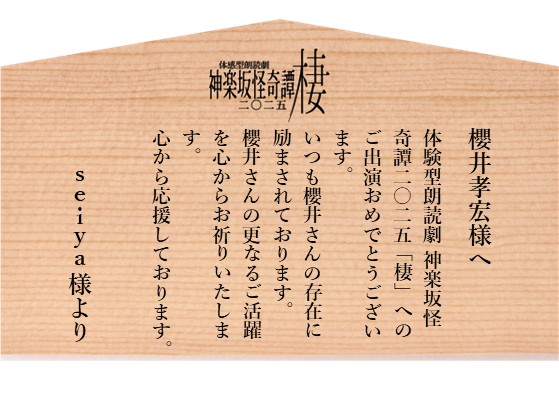 体感型朗読劇
神楽坂怪奇譚
二〇二五
棲
櫻井孝宏様へ
体験型朗読劇 神楽坂怪
奇譚二〇二五「棲」への
ご出演おめでとうござい
ます。
いつも櫻井さんの存在に
励まされております。
櫻井さんの更なるご活躍
を心からお祈りいたしま
す。
心から応援しております。
seiya様より